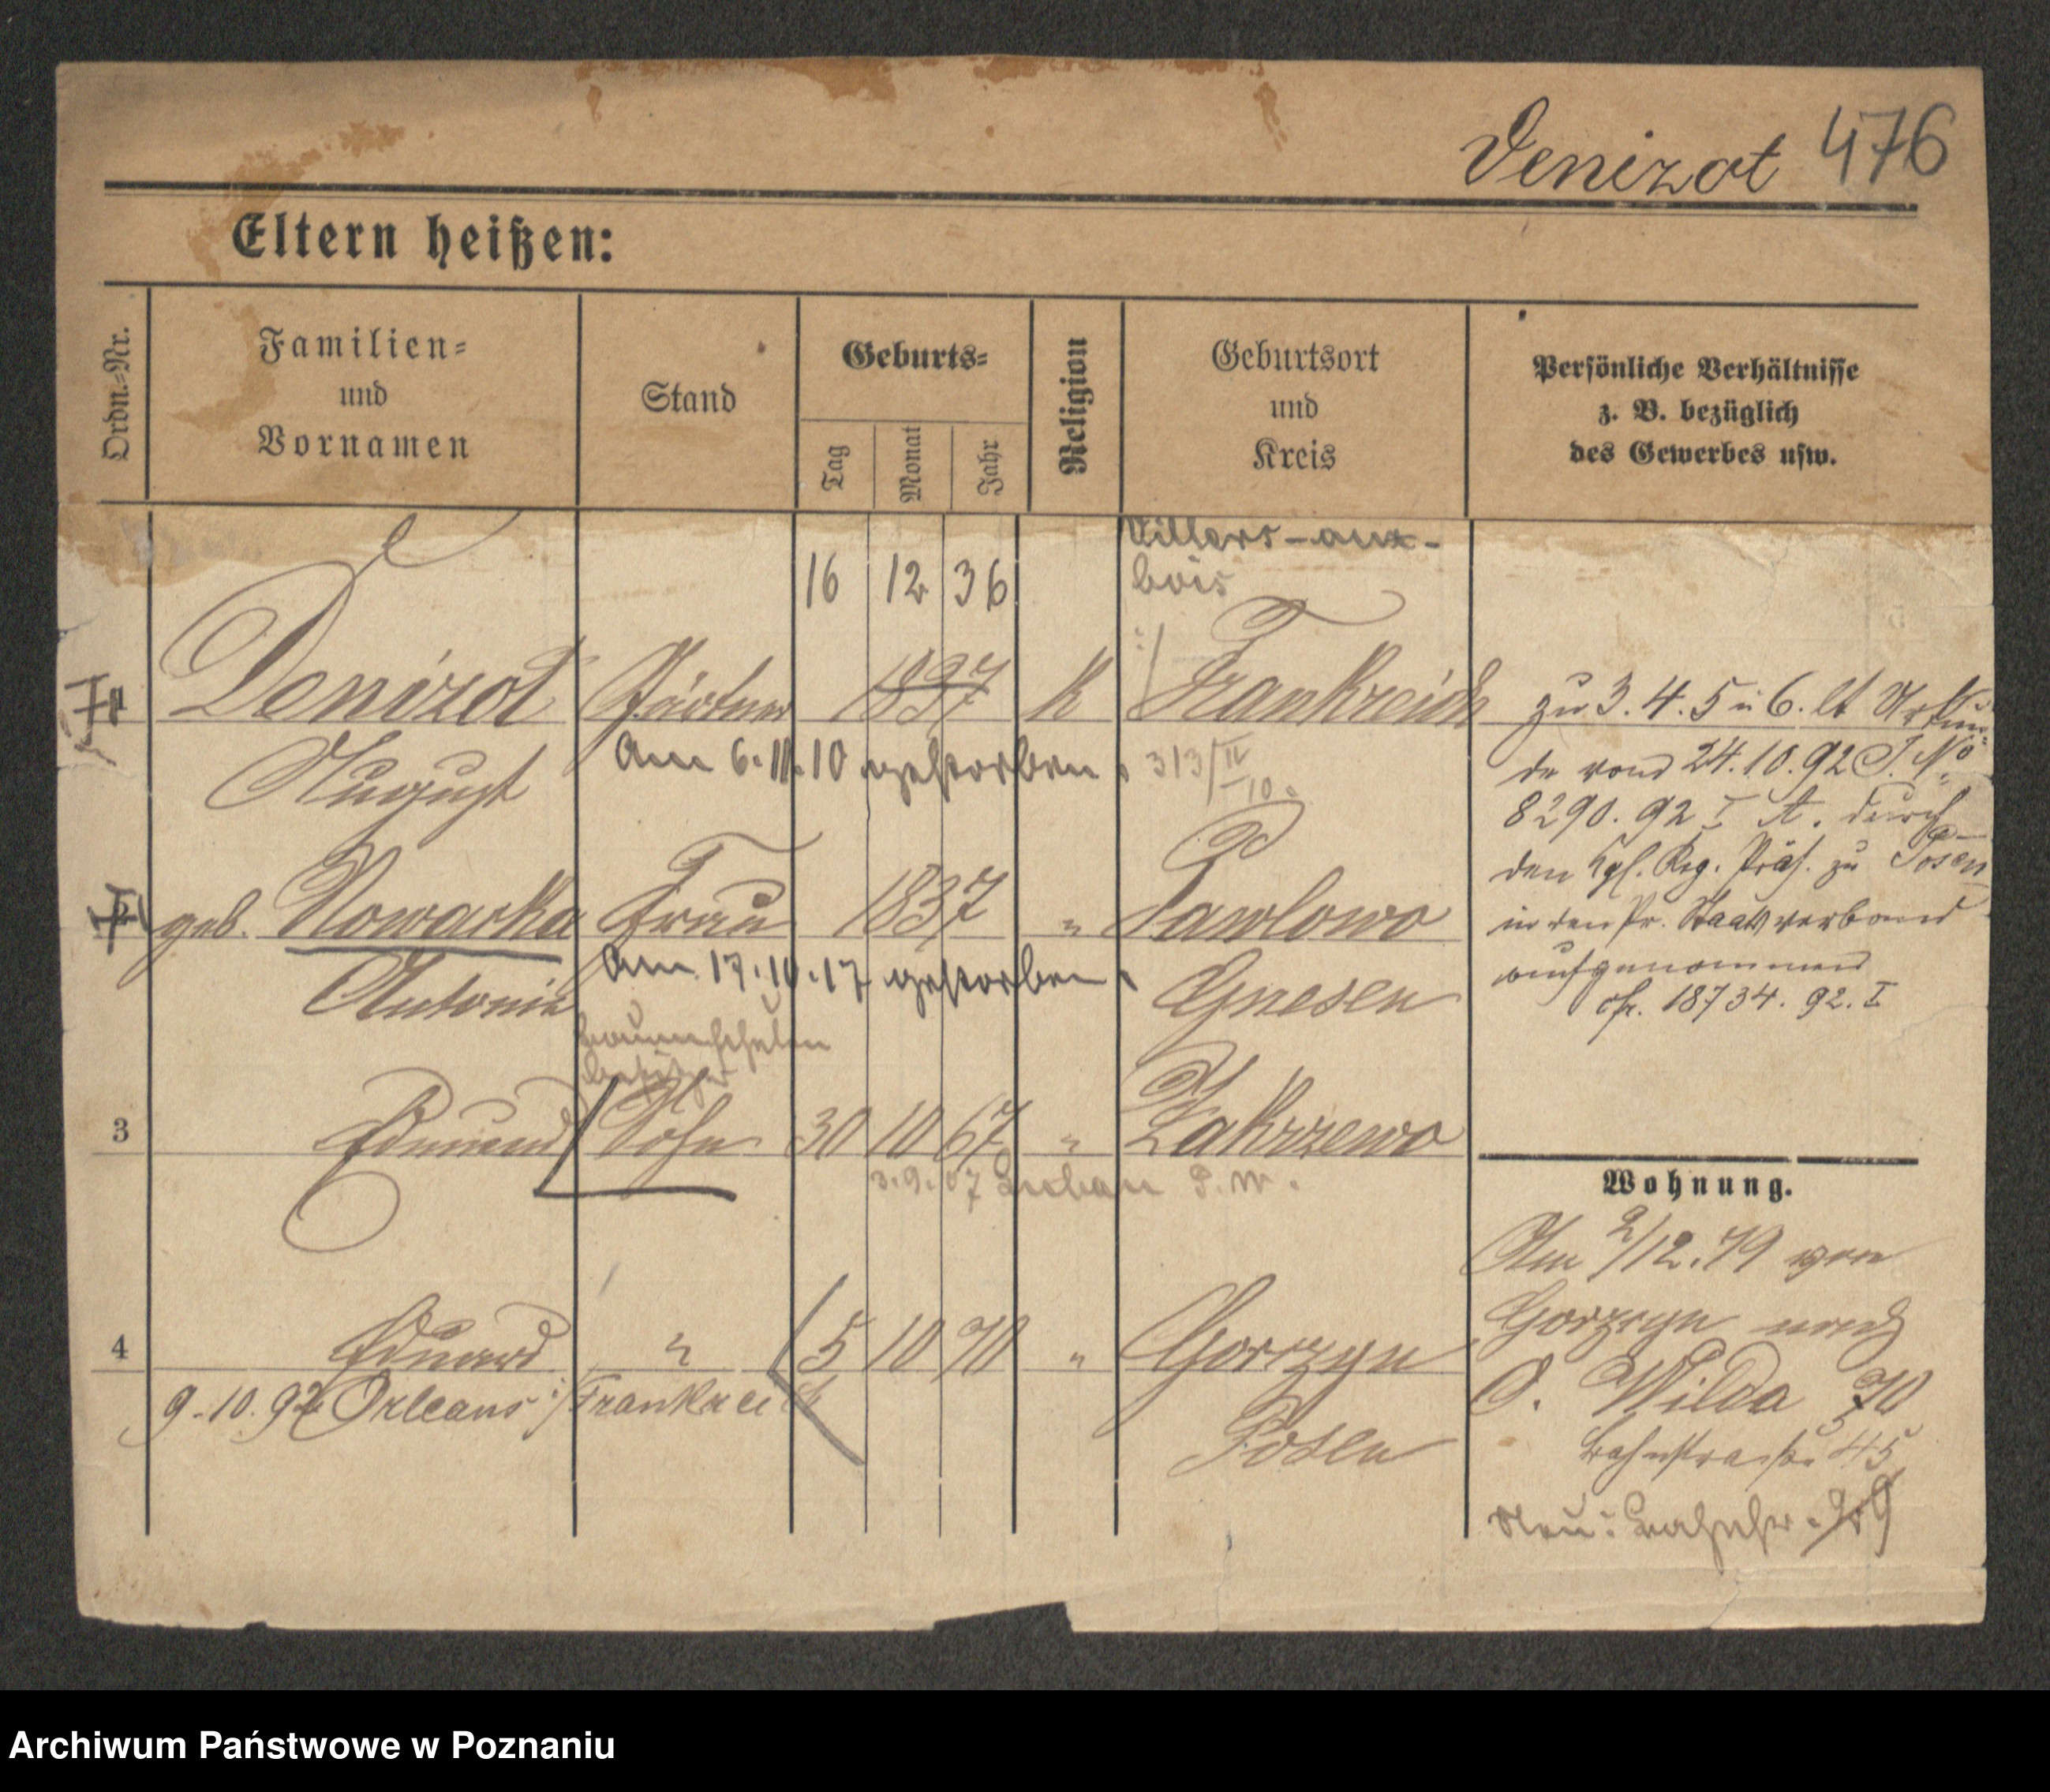 Denizot 476
Eltern heißen:
Ordn.-Nr.
Familien-
und
Vornamen
Stand
Geburts-
Tag
Monat
Jahr
Religion
Geburtsort
und
Kreis
Persönliche Verhältnisse
z. B. bezüglich
des Gewerbes usw.
Villers-aux-
bois
16 12 36
Denizot Gärtner 1837 k Frankreich
August
Am 6.11.10 gestorben. 313/IV
10.
geb. Nowacka Frau 1837 " Pawlowo
Antonie
Am 17.10.17 gestorben.
Gnesen
Baumschulen
besitzer
3 Edmund Sohn 30 10 67 " Zakrzewo
3.9.07 Luban P.W.
4 Eduard " 5 10 70 " Gorczyn
9.10.92 Orleans :/ Frankreich
Posen
zu 3.4.5 u 6. lt Urkun-
de vom 24.10.92 J. No
8290.92 I A. durch
den Kgl. Reg. Präs. zu Posen
in den Pr. Staatsverband
aufgenommen
cfr. 18734.92.I
Wohnung.
Am 2/12.79 von
Gorczyn nach
O. Wilda 70
Bahnstraße 45
Neu: Bahnstr.